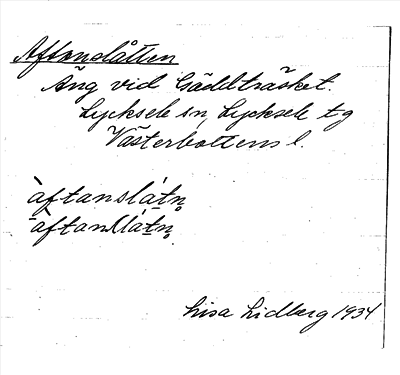 Aftonslåtten
Äng vid Gäddträsket.
Lycksele sn, Lycksele tg
Västerbottens l
àftanslátn̥
àftanslátn̥.
Lisa Lidberg 1934